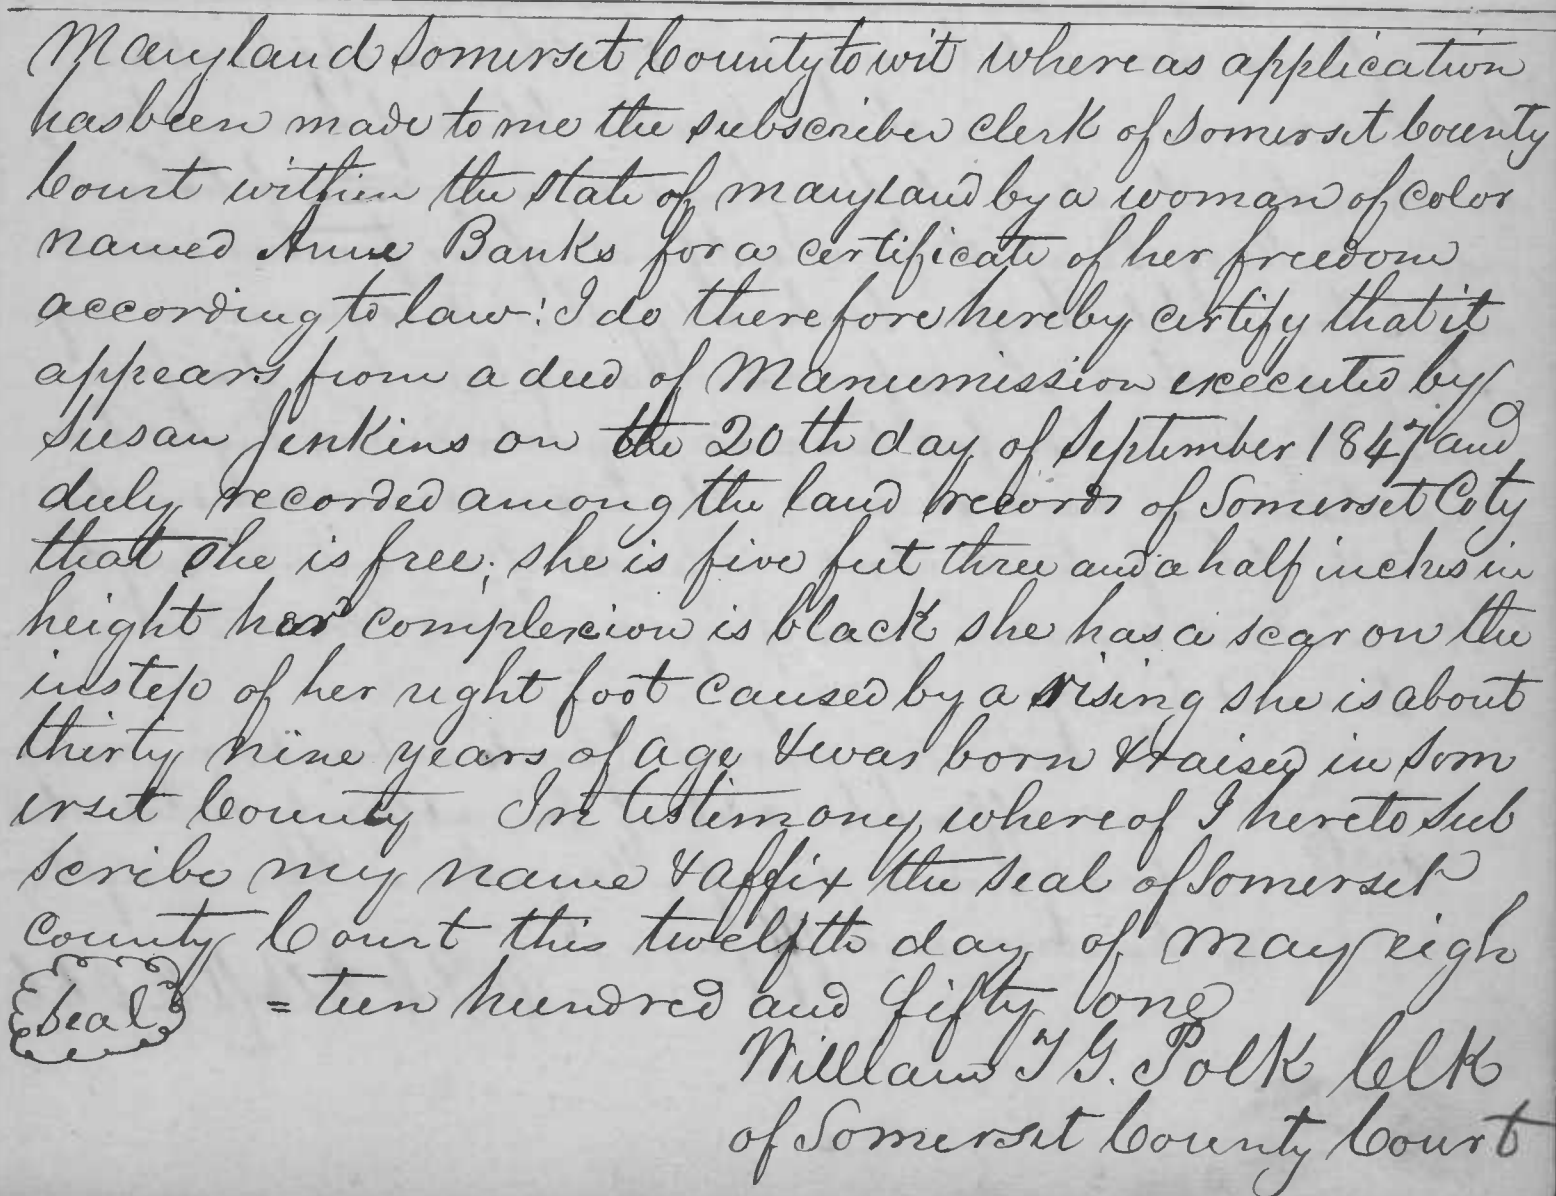 Maryland Somerset County to wit where as application
has been made to me the subscriber clerk of Somerset County
Court within the State of Maryland by a woman of color
named Anne Banks for a certificate of her freedom
according to law: I do therefore hereby certify that it
appears from a deed of Manumission executed by
Susan Jenkins on the 20th day of September 1847 and
duly recorded among the land records of Somerset Coty
that she is free; she is five feet three and a half inches in
height her complexion is black she has a scar on the
instep of her right foot caused by a rising she is about
thirty nine years of age & was born & raised in Som
erset County In testimony whereof I hereto Sub
scribe my name & affix the seal of Somerset
County Court this twelfth day of May eigh
= teen hundred and fifty one
Seal
William T G. Polk Clk
of Somerset County Court